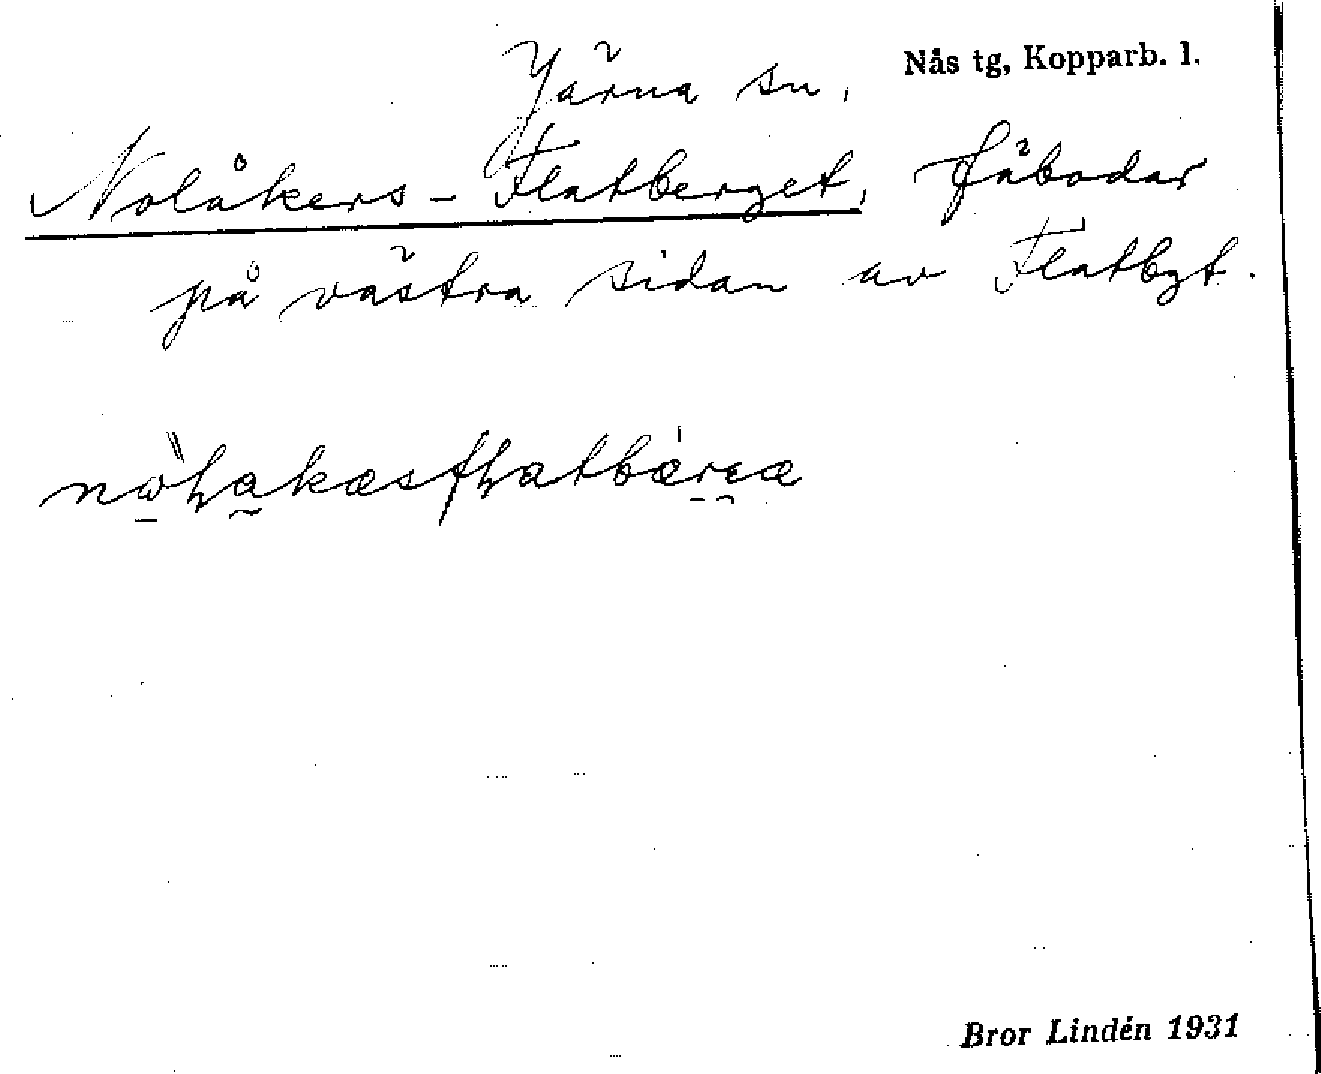 Järna sn, Nås tg, Kopparb. l.
Nolåkers-Flatberget, fäbodar
på västra sidan av Flatbgt.
Bror Lindén 1931